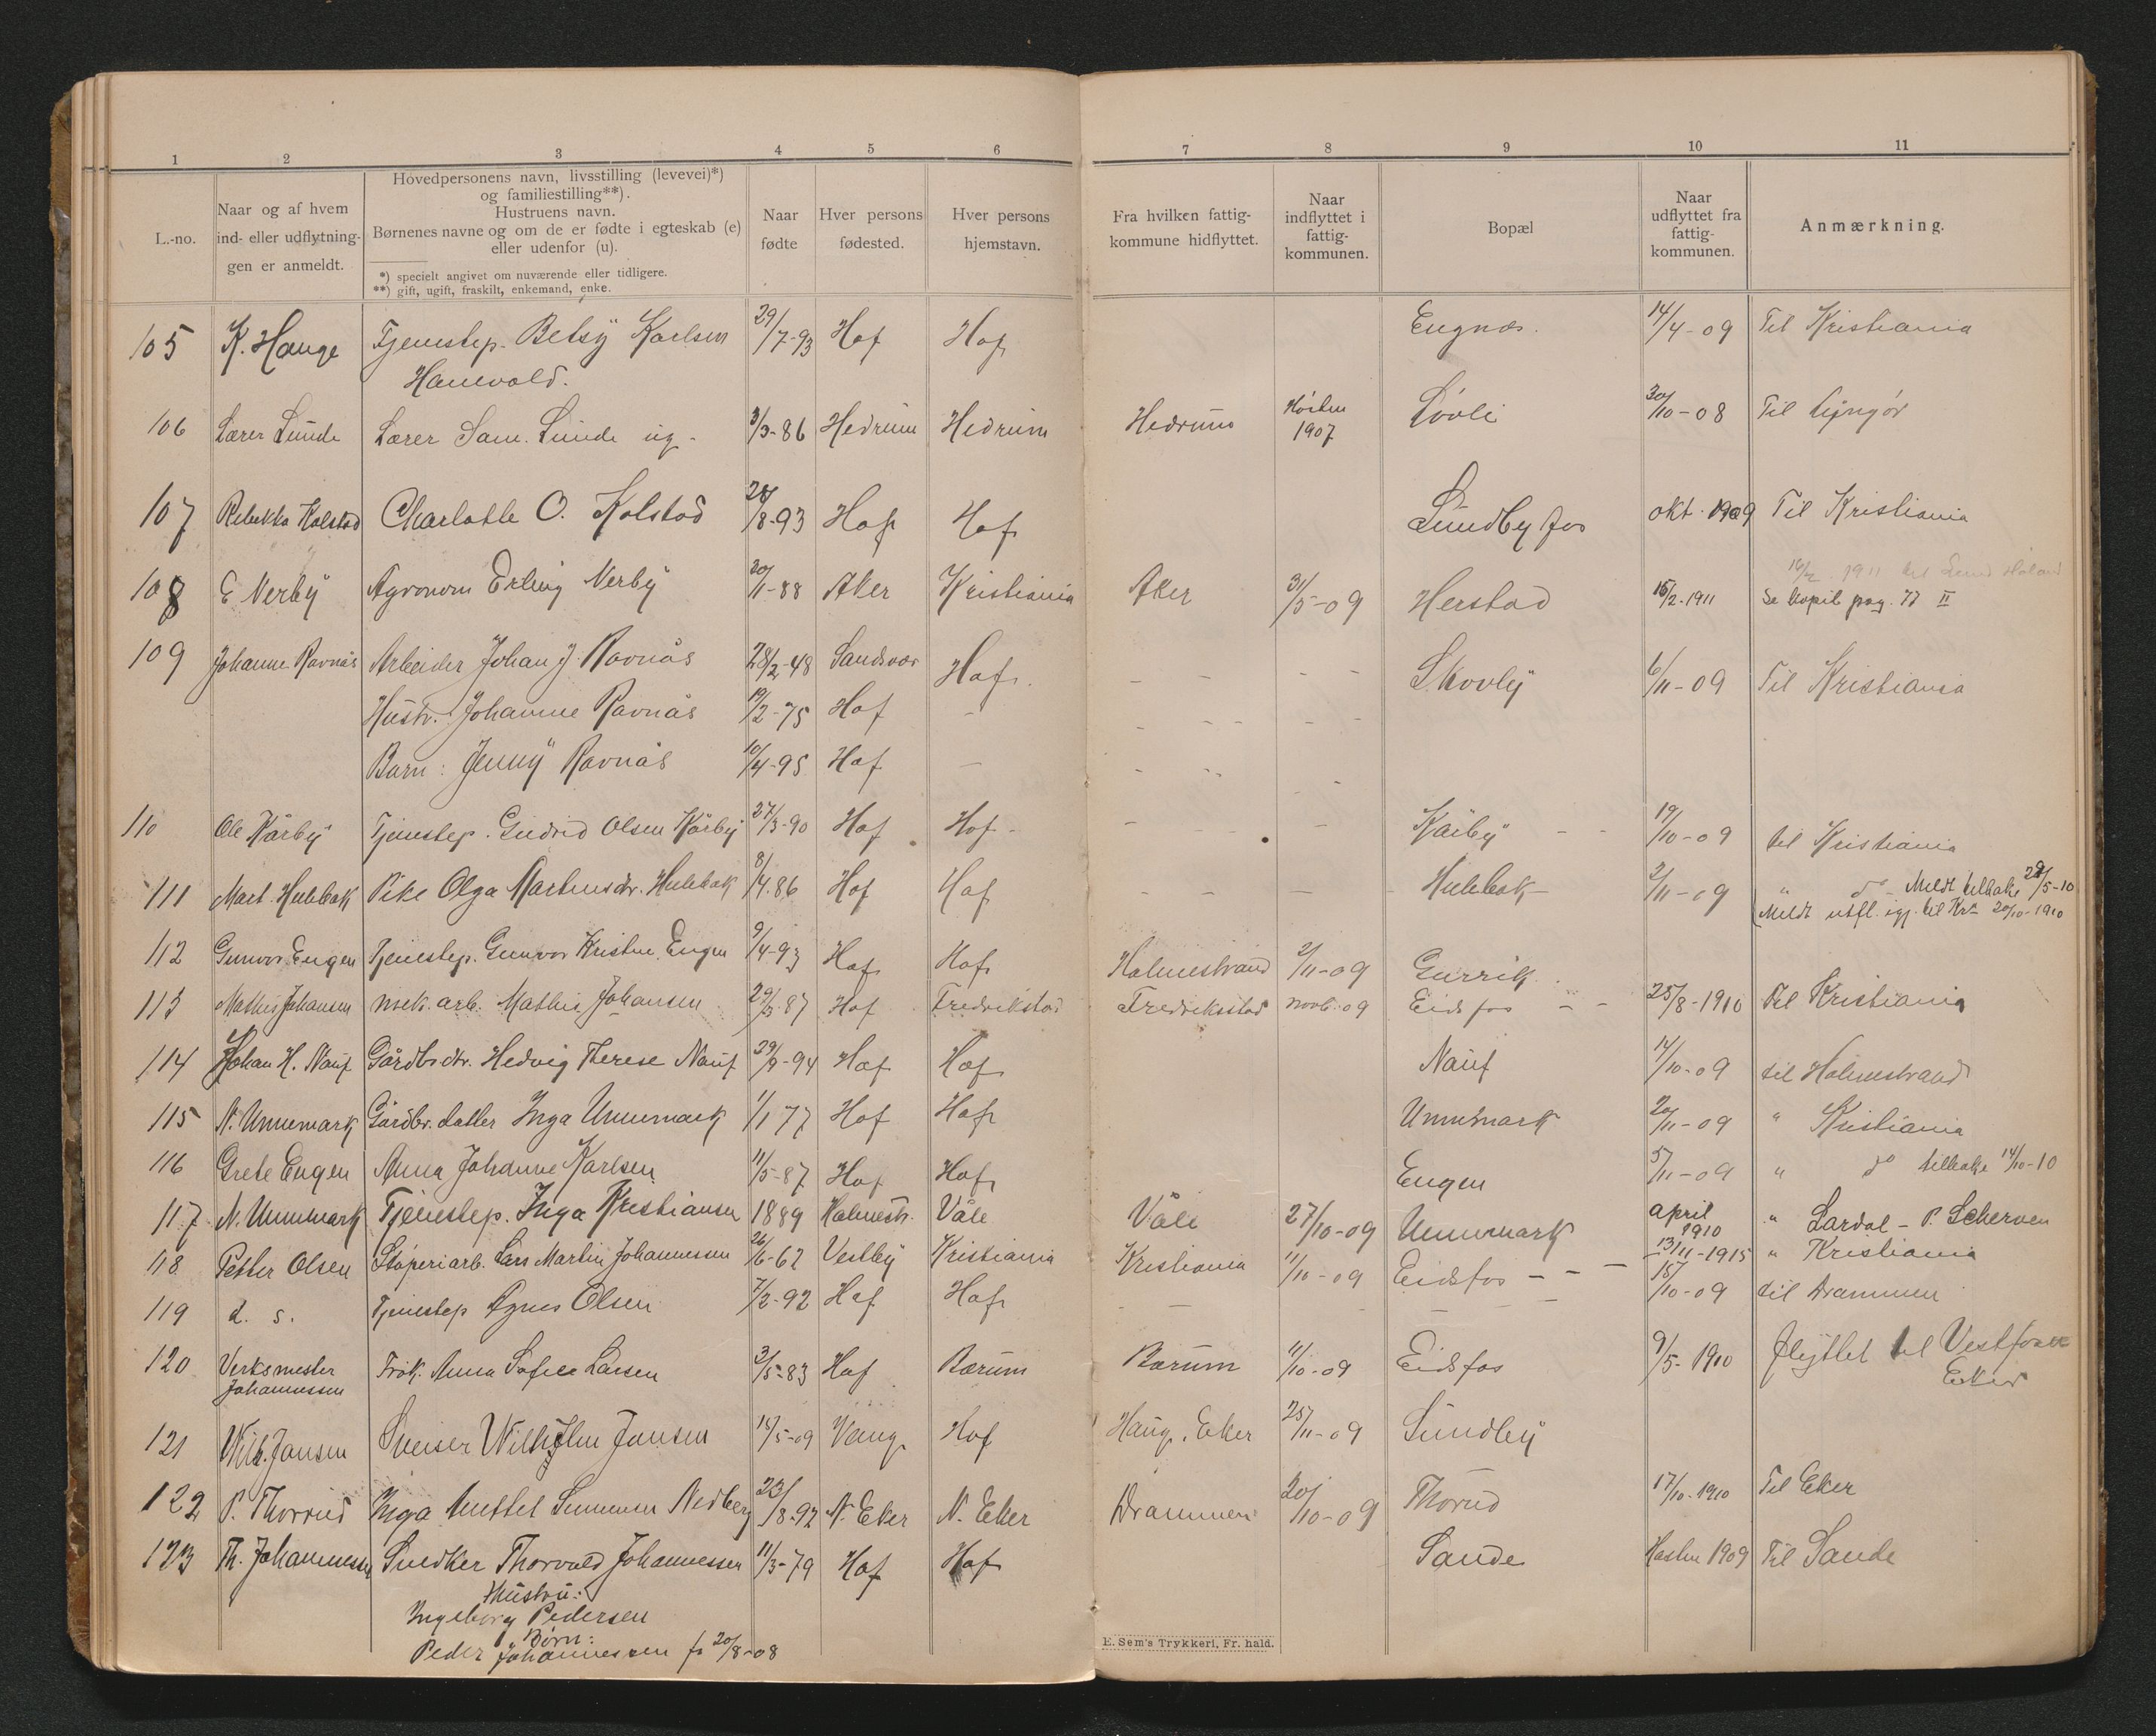 1 2 3 4 5 6 7 8 9 10 11
L.-no.
Naar og af hvem
ind- eller udflytnin-
gen er anmeldt.
Hovedpersonens navn, livsstilling (levevei)*)
og familiestilling**).
Hustruens navn.
Børnenes navne og om de er fødte i egteskab (e)
eller udenfor (u).
*) specielt angivet om nuværende eller tidligere.
**) gift, ugift, fraskilt, enkemand, enke.
Naar
fødte
Hver persons
fødested.
Hver persons
hjemstavn.
Fra hvilken fattig-
kommune hidflyttet.
Naar
indflyttet i
fattig-
kommunen.
Bopæl
Naar
udflyttet fra
fattig-
kommunen.
Anmærkning.
105 K. Hauge Tjenestep. Betsy Karlsen 29/7-93 Hof Hof Engnæs. 14/4-09 Til Kristiania
Hanevold.
106 Lærer Lunde Lærer Sam. Lunde ug. 3/3-86 Hedrum Hedrum Hedrum Høsten 1907 Løvli 30/10-08 Til Lyngør
107 Rebekka Kolstad Charlotte O. Kolstad 28/8-93 Hof Hof Sundbyfos okt. 1909 Til Kristiania
16/2 1911 til
108 E Nerby Agronom Erling Nerby 20/11-88 Aker Kristiania Aker 31/5-09 Herstad 15/2-1911 Se kopib pag. 77 II
109 Johanne Ravnås Arbeider Johan J. Ravnås 28/2-48 Sandsvær Hof. - - - - Skovly 6/11-09 Til Kristiania
Hustr. Johanne Ravnås 19/2-75 Hof - - - - - -
Barn: Jenny Ravnås 10/4-95 Hof - - - - -
110 Ole Kårby Tjenestep. Gudrid Olsen Kårby 27/3-90 Hof Hof - - - - - Kårby - - 19/10-09 til Kristiania
111 Mart. Hulebak Pike Olga Martinsdtr. Hulebak 8/4.86 Hof Hof - - - - Hulebak - 2/11-09 " do - Meldt tilbake 28/5-10
Meldt utfl. igj. til Kra 20/10-1910
112 Gunvor Engen Tjenestep. Gunvor Kristine Engen 9/4-93 Hof Hof Holmestrand 2/11-09
113 Mathis Johansen mek. arb. Mathis Johansen 29/3.87 Hof Fredrikstad Fredriksstad novb. 09 Eidsfos - - 25/8-1910 Til Kristiania
114 Johan H. Nauf Gårdbr.dtr. Hedvig Therese Nauf 29/9-94 Hof Hof Nauf 14/10-09 til Holmestrand
115 N. Unnemark Gårdbr. datter Inga Unnemark 1/1 77 Hof Hof Unnemark 20/11-09 " Kristiania
116 Grete Engen Anna Johanne Karlsen 11/5-87 Hof Hof Engen 5/11-09 " do tilbake 14/10-10
117 N. Unnemark Tjenestep. Inga Kristiansen 1889 Holmestr. Våle Våle 27/10-09 Unnemark april 1910 " Lardal - P. Scherven
118 Petter Olsen Støperiarb. Lars Martin Johannessen 26/6-62 Vestby Kristiania Kristiania 11/10-09 Eidsfos - - - 13/11-1915 " Kristiania
119 d. s. Tjenestep Agnes Olsen 7/2-92 Hof Hof - - - - - 18/10-09 til Drammen
120 Verksmester Frøk. Anna Sofie Larsen 3/5-83 Hof Bærum Bærum 11/10-09 Eidsfos 9/5-1910 Flyttet til Vestfossen
Johannessen Eker
121 Wilh. Jansen Sveiser Wilhjelm Jansen 15/5-09 Vang Hof Haug, Eker 25/11-09 Sundby
122 P. Thorrud Inga Nedberg 23/8-92 N. Eker N. Eker Drammen 20/10-09 Thorud 17/10-1910 Til Eker
123 Th. Johannessen Snedker Thorvald Johannessen 11/3-79 Hof Hof Sande Høsten 1909 Til Sande
Hustru:
Ingeborg Pedersen
Børn:
Peder Johannessen f. 20/8-08
E. Sem's Trykkeri, Fr. hald.